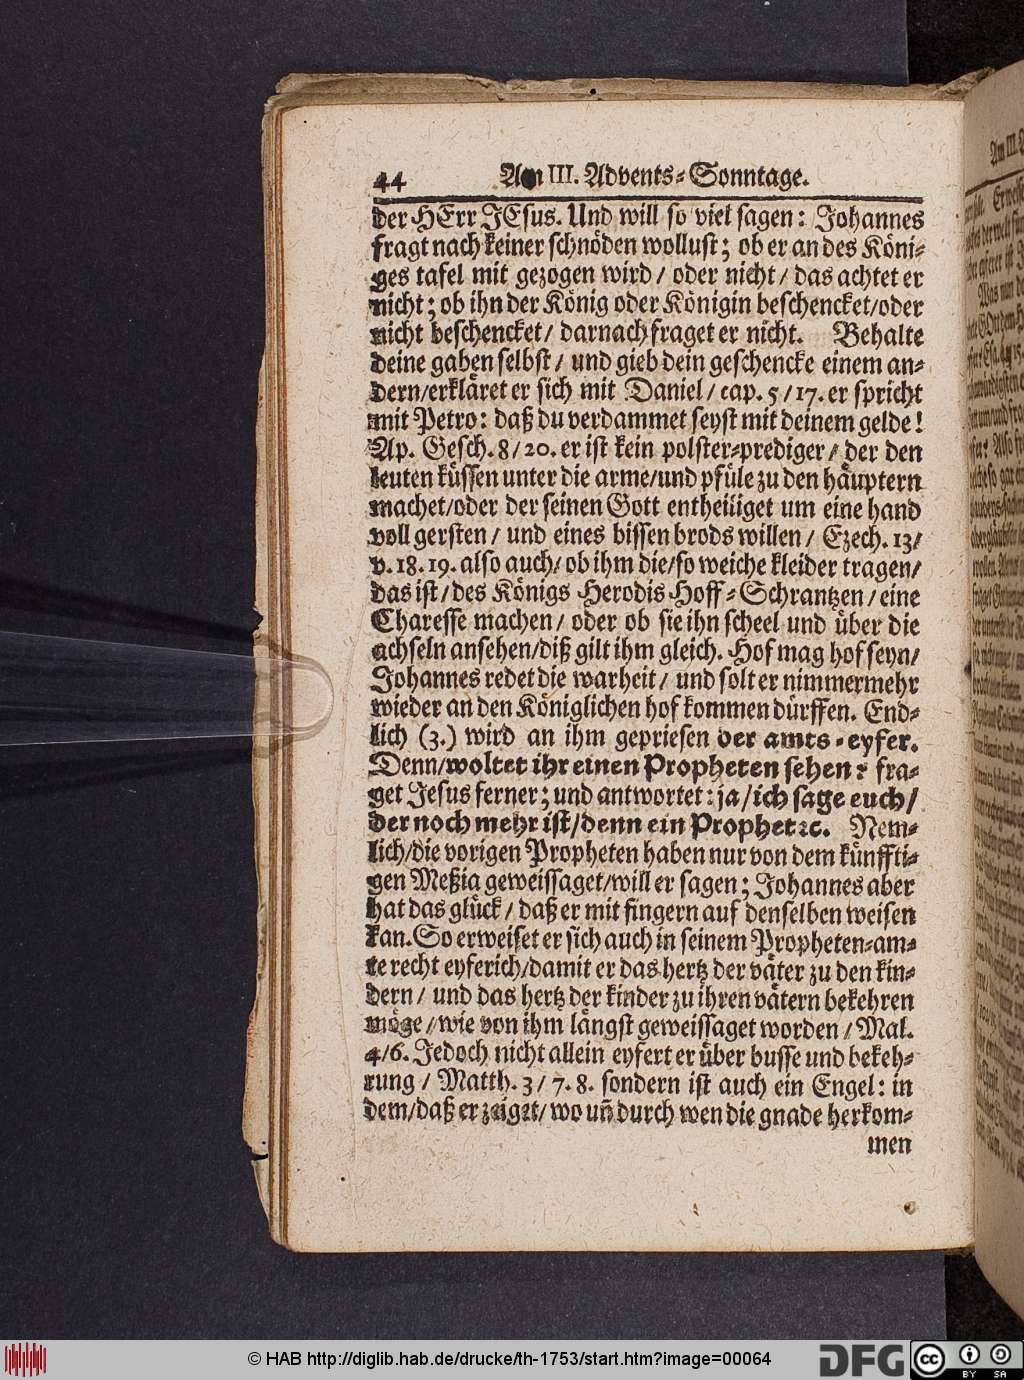 44 Am III. Advents-Sonntage.
der HErr JEsus. Und will so viel sagen: Johannes
fragt nach keiner schnöden wollust; ob er an des Köni-
ges tafel mit gezogen wird/ oder nicht/ das achtet er
nicht; ob ihn der König oder Königin beschencket/oder
nicht beschencket/ darnach fraget er nicht. Behalte
deine gaben selbst/ und gieb dein geschencke einem an-
dern/erkläret er sich mit Daniel/ cap. 5/17. er spricht
mit Petro: daß du verdammet seyst mit deinem gelde!
Ap. Gesch. 8/20. er ist kein polster-prediger/ der den
leuten küssen unter die arme/und pfüle zu den häuptern
machet/oder der seinen Gott entheiliget um eine hand
voll gersten/ und eines bissen brods willen/ Ezech. 13/
v. 18. 19. also auch/ ob ihm die/so weiche kleider tragen/
das ist/ des Königs Herodis Hoff-Schrantzen/ eine
Charesse machen/ oder ob sie ihn scheel und über die
achseln ansehen/diß gilt ihm gleich. Hof mag hof seyn/
Johannes redet die warheit/ und solt er nimmermehr
wieder an den Königlichen hof kommen dürffen. End-
lich (3.) wird an ihm gepriesen der amts-eyfer.
Denn/woltet ihr einen Propheten sehen? fra-
get Jesus ferner; und antwortet: ja/ich sage euch/
der noch mehr ist/denn ein Prophet ꝛc. Nem-
lich/die vorigen Propheten haben nur von dem künffti-
gen Meßia geweissaget/will er sagen; Johannes aber
hat das glück/ daß er mit fingern auf denselben weisen
kan. So erweiset er sich auch in seinem Propheten-am-
te recht eyferich/damit er das hertz der väter zu den kin-
dern/ und das hertz der kinder zu ihren vätern bekehren
möge/wie von ihm längst geweissaget worden/ Mal.
4/6. Jedoch nicht allein eyfert er über busse und bekeh-
rung/ Matth. 3/ 7. 8. sondern ist auch ein Engel: in
dem/daß er zeiget/ wo uñ durch wen die gnade herkom-
men
© HAB http://diglib.hab.de/drucke/th-1753/start.htm?image=00064
DFG
cc
BY SA